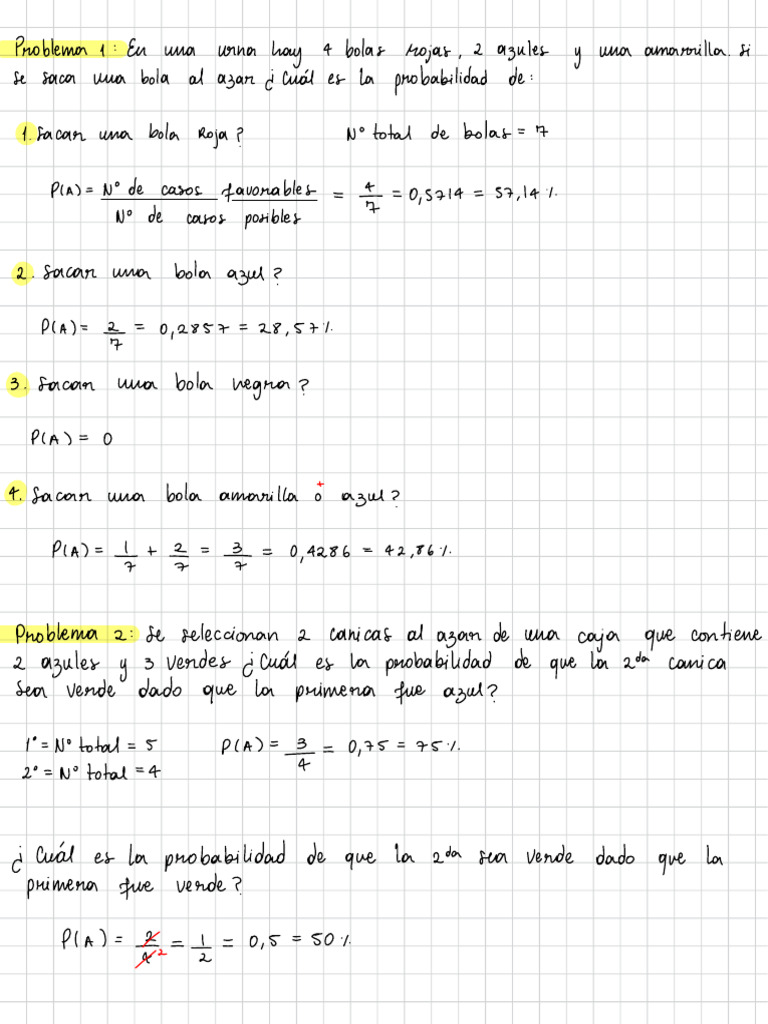 Problema 1: En una urna hay 4 bolas rojas, 2 azules y una amarilla. si
se saca una bola al azar ¿Cuál es la probabilidad de:
1. Sacar una bola Roja? N° total de bolas = 7
P(A) = N° de casos favorables / N° de casos posibles = 4/7 = 0,5714 = 57,14 %
2. Sacar una bola azul?
P(A) = 2/7 = 0,2857 = 28,57 %
3. Sacar una bola negra?
P(A) = 0
4. Sacar una bola amarilla o + azul?
P(A) = 1/7 + 2/7 = 3/7 = 0,4286 = 42,86 %
Problema 2: Se seleccionan 2 canicas al azar de una caja que contiene
2 azules y 3 verdes ¿Cuál es la probabilidad de que la 2da canica
sea verde dado que la primera fue azul?
1° = N° total = 5 P(A) = 3/4 = 0,75 = 75 %
2° = N° total = 4
¿Cuál es la probabilidad de que la 2da sea verde dado que la
primera fue verde?
P(A) = 2/4 2 = 1/2 = 0,5 = 50 %